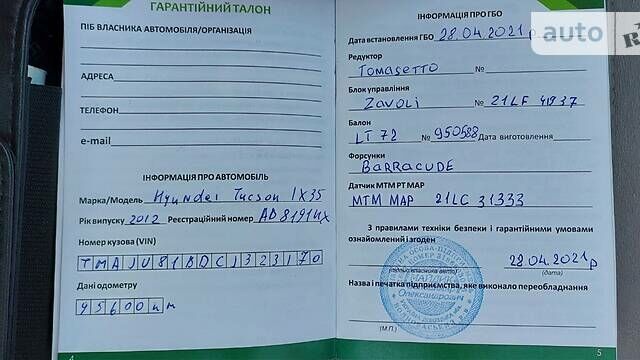 ГАРАНТІЙНИЙ ТАЛОН
ПІБ ВЛАСНИКА АВТОМОБІЛЯ/ОРГАНІЗАЦІЯ
АДРЕСА
ТЕЛЕФОН
e-mail
ІНФОРМАЦІЯ ПРО АВТОМОБІЛЬ
Марка/Модель Hyundei Tucson IX35
Рік випуску 2012 Реєстраційний номер AD8191
Номер кузова (VIN)
TMAJU81BDCJ323170
Дані одометру
95600 км
4
ІНФОРМАЦІЯ ПРО ГБО
Дата встановлення ГБО 28.04.2021р
Редуктор
Tomasetto №
Блок управління
Zavoli 21LF 41937
Балон
LT 72 № 950588 Дата виготовлення
Форсунки
BARRACUDE
Датчик МТМ РТ МАР
МТМ МАР 21LC 31333
З правилами техніки безпеки і гарантійними умовами
ознайомлений і згоден
28.04.2021р
(підпис власника авто) (дата)
Назва і печатка підприємства, яке виконало переобладнання
Олександрович
(М.П.)
5
auto